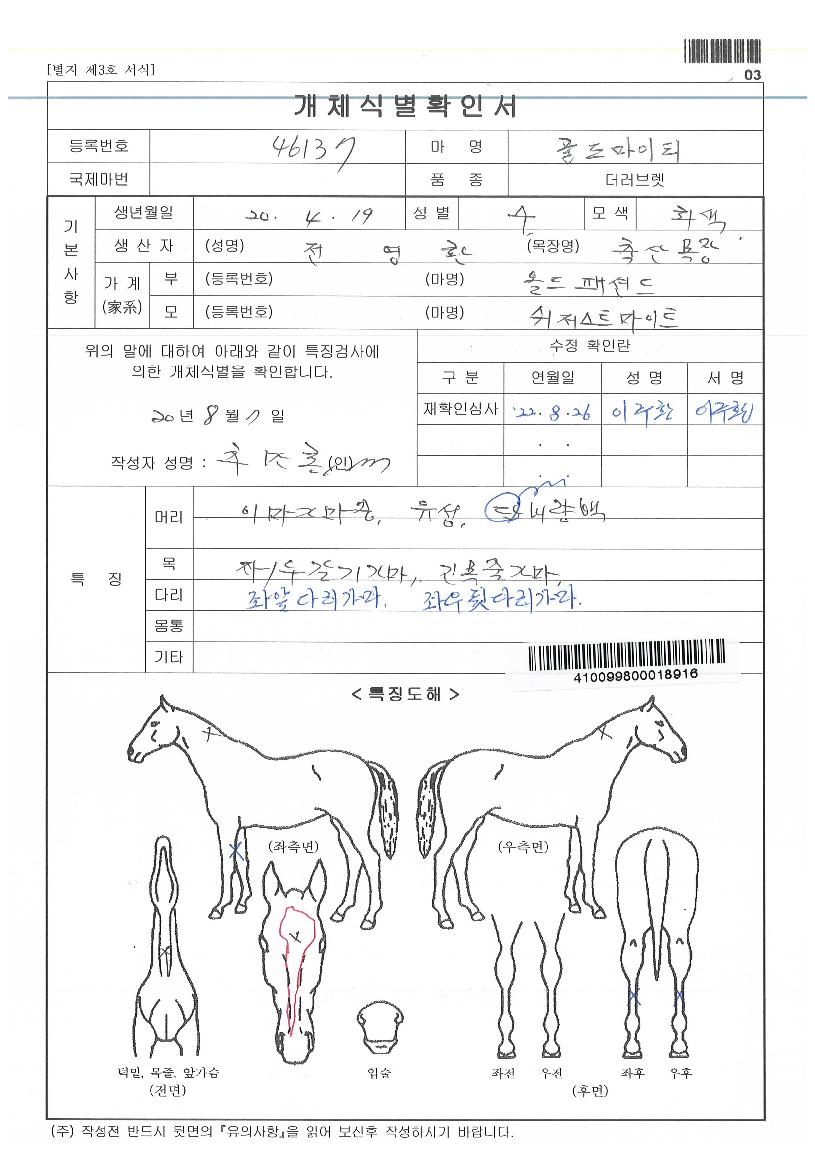 [별지 제3호 서식]
03
개체식별확인서
등록번호 46137 마 명 골드마이티
국제마번 품 종 더러브렛
기본사항
생년월일 20. 4. 19 성별 수 모색 회색
생산자 (성명) 전 영 환 (목장명) 축산목장
가계 (家系) 부 (등록번호) (마명) 올드패션드
모 (등록번호) (마명) 쉬저스트마이트
위의 말에 대하여 아래와 같이 특징검사에
의한 개체식별을 확인합니다.
20년 8월 7일
작성자 성명 : (인)
수정 확인란
구 분 연월일 성 명 서 명
재확인심사 '22. 8. 26 이주환 이주환
특 징
머리 이마가마중, 유성,
목 좌/우갈기가마, 긴목줄가마,
다리 좌앞다리가마. 좌우뒷다리가마.
몸통
기타
410099800018916
< 특징도해 >
(좌측면) (우측면)
턱밑, 목줄, 앞가슴
(전면)
입술
좌전 우전 좌후 우후
(후면)
(주) 작성전 반드시 뒷면의 『유의사항』을 읽어 보신후 작성하시기 바랍니다.